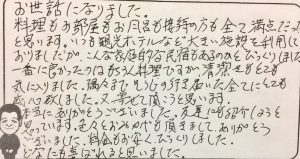 お世話になりました。
料理もお部屋もお風呂も接待の方も全て満点だったと
思います。いつも観光ホテルなど大きい施設を利用して
おりましたが、こんな家庭的な民宿もあるのかとびっくりしました
一番に良かったのはもちろん料理ですが、清潔さもとても
気に入りました。隅々まで
感心致しました。又、寄せて頂こうと思います。
本当にありがとうございました。友達にも紹介しようと
思っています。色々とおみやげも頂きましてありがとう
ございました。料金もお安く、びっくりしました。
どなたも喜ばれると思いました。